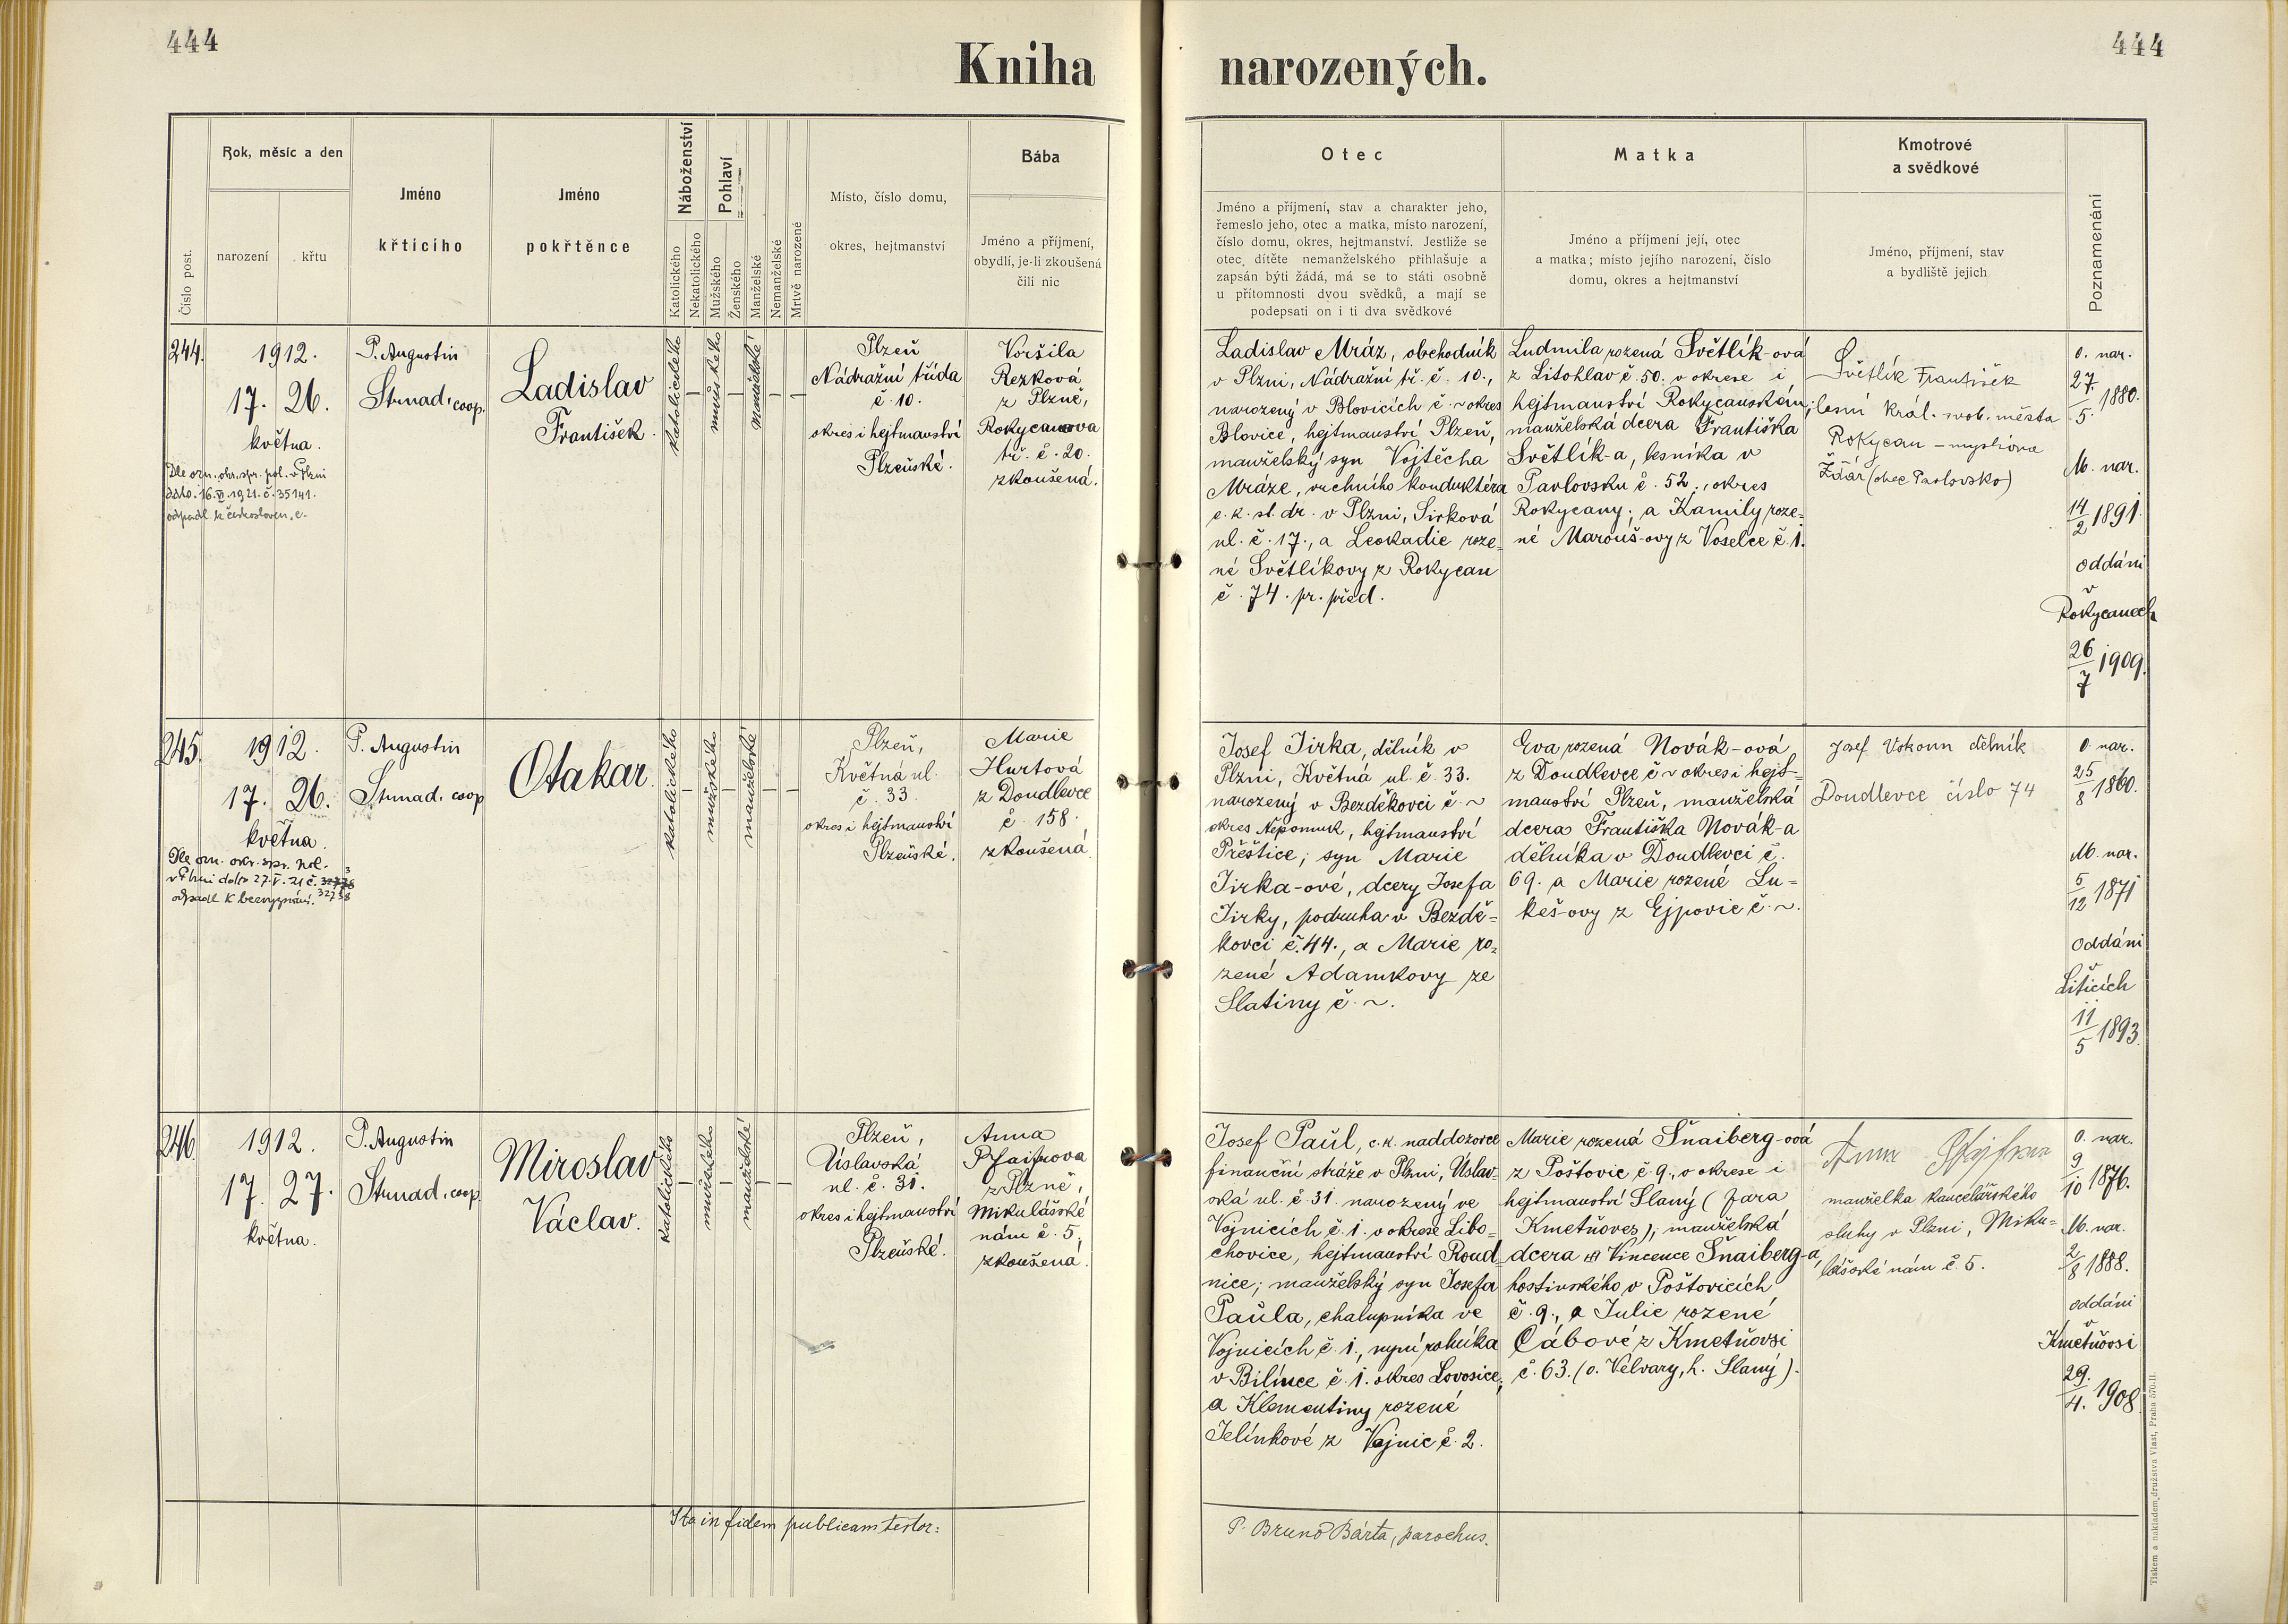 444
444
Kniha narozených.
Číslo post.
Rok, měsíc a den
narození
křtu
Jméno
křticího
Jméno
pokřtěnce
Náboženství
Katolického
Nekatolického
Pohlaví
Mužského
Ženského
Manželské
Nemanželské
Mrtvě narozené
Místo, číslo domu,
okres, hejtmanství
Bába
Jméno a příjmení,
obydlí, je-li zkoušená
čili nic
Otec
Jméno a příjmení, stav a charakter jeho,
řemeslo jeho, otec a matka, místo narození,
číslo domu, okres, hejtmanství. Jestliže se
otec dítěte nemanželského přihlašuje a
zapsán býti žádá, má se to státi osobně
u přítomnosti dvou svědků, a mají se
podepsati on i ti dva svědkové
Matka
Jméno a příjmení její, otec
a matka; místo jejího narození, číslo
domu, okres a hejtmanství
Kmotrové
a svědkové
Jméno, příjmení, stav
a bydliště jejich
Poznamenání
244.
1912.
17. 26.
května.
Dle ozn. okr. spr. pol. v Plzni
dato. 16.VI.1921. č. 35141.
odpadl k českosloven. c.
P. Augustin
Strnad, coop.
Ladislav
František.
katolického
mužského
manželské
Plzeň
Nádražní třída
č. 10.
okres i hejtmanství
Plzeňské.
Voršila
Rezková
z Plzně,
Rokycanova
tř. č. 20.
zkoušená.
Ladislav Mráz, obchodník
v Plzni, Nádražní tř. č. 10.,
narozený v Blovicích č. ~ okres
Blovice, hejtmanství Plzeň,
manželský syn Vojtěcha
Mráze, vrchního konduktéra
c. k. st. dr. v Plzni, Sirková
ul. č. 17., a Leokadie roze-
né Světlíkovy z Rokycan
č. 74. pr. před.
Ludmila rozená Světlík-ová
z Litohlav č. 50. v okrese i
hejtmanství Rokycanském;
manželská dcera Františka
Světlík-a, lesníka v
Pavlovsku č. 52., okres
Rokycany; a Kamily roze-
né Marouš-ovy z Voselce č. 1.
Světlík František
lesní král. svob. města
Rokycan – myslivna
Žďár (obec Pavlovsko)
O. nar.
27./5. 1880.
M. nar.
14/2 1891.
oddáni
v
Rokycanech
26/7 1909.
245.
1912.
17. 26.
května.
Dle ozn. okr. spr. pol.
v Plzni dato 27.V.21 č.
odpadl k bezvyznání. 32738
P. Augustin
Strnad, coop
Otakar.
katolického
mužského
manželské
Plzeň,
Květná ul.
č. 33.
okres i hejtmanství
Plzeňské.
Marie
Hurtová
z Doudlevec
č. 158.
zkoušená
Josef Jirka, dělník v
Plzni, Květná ul. č. 33.
narozený v Bezděkovci č. ~
okres Nepomuk, hejtmanství
Přeštice; syn Marie
Jirka-ové, dcery Josefa
Jirky, podruha v Bezdě-
kovci č. 44., a Marie ro-
zené Adamkovy ze
Slatiny č. ~.
Eva rozená Novák-ová
z Doudlevec č ~ okres i hejt-
manství Plzeň, manželská
dcera Františka Novák-a
dělníka v Doudlevci č.
69. a Marie rozené Lu-
keš-ovy z Ejpovic č. ~.
Josef dělník
Doudlevce číslo 74
O. nar.
25/8 1860.
M. nar.
5/12 1871
oddáni
v
Liticích
11/5 1893.
246.
1912.
17. 27.
května.
P. Augustin
Strnad, coop.
Miroslav
Václav.
katolického
mužského
manželské
Plzeň,
Úslavská
ul. č. 31.
okres i hejtmanství
Plzeňské.
Anna
z Plzně,
Mikulášské
nám č. 5.
zkoušená.
Josef Paůl, c.k. naddozorce
finanční stráže v Plzni, Úslav-
ská ul. č. 31. narozený ve
Vojnicích č. 1. v okrese Libo-
chovice, hejtmanství Roud-
nice; manželský syn Josefa
Paůla, chalupníka ve
Vojnicích č. 1., nyní rolníka
v Bilince č. 1. okres Lovosice;
a Klementiny rozené
Jelínkové z Vojnic č. 2.
Marie rozená Šnaiberg-ová
z Poštovic č 9., v okrese i
hejtmanství Slaný (fara
Kmetňoves); manželská
dcera Vincence Šnaiberg-a,
hostinského v Poštovicích
č. 9., a Julie rozené
Cábové z Kmetňovsi
č. 63. (o. Velvary, h. Slaný).
Anna
manželka kancelářského
sluhy v Plzni, Miku-
lášské nám č. 5.
O. nar.
9/10 1876.
M. nar.
2/8 1888.
oddáni
v
Kmetňovsi
29./4. 1908
Ita in fidem publicam testor:
P. Bruno Bárta, parochus.
Tiskem a nakladem družstva Vlast, Praha 570-II.